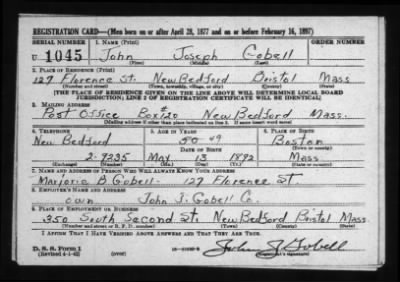 REGISTRATION CARD—(Men born on or after April 28, 1877 and on or before February 16, 1897)
SERIAL NUMBER 1. NAME (Print) ORDER NUMBER
U 1045 John Joseph Gobell
(First) (Middle) (Last)
2. PLACE OF RESIDENCE (Print)
127 Florence St. New Bedford Bristol Mass
(Number and street) (Town, township, village, or city) (County) (State)
[THE PLACE OF RESIDENCE GIVEN ON THE LINE ABOVE WILL DETERMINE LOCAL BOARD
JURISDICTION; LINE 2 OF REGISTRATION CERTIFICATE WILL BE IDENTICAL]
3. MAILING ADDRESS
Post Office Box # 120 New Bedford Mass.
[Mailing address if other than place indicated on line 2. If same insert word same]
4. TELEPHONE 5. AGE IN YEARS 6. PLACE OF BIRTH
New Bedford 50 49 Boston
DATE OF BIRTH (Town or county)
2-7235 May 13 1892 Mass
(Exchange) (Number) (Mo.) (Day) (Yr.) (State or country)
7. NAME AND ADDRESS OF PERSON WHO WILL ALWAYS KNOW YOUR ADDRESS
Marjorie B. Gobell - 127 Florence St
8. EMPLOYER'S NAME AND ADDRESS
own John J. Gobell Co.
9. PLACE OF EMPLOYMENT OR BUSINESS
350 South Second St. New Bedford Bristol Mass.
(Number and street or R. F. D. number) (Town) (County) (State)
I AFFIRM THAT I HAVE VERIFIED ABOVE ANSWERS AND THAT THEY ARE TRUE.
D. S. S. Form 1
(Revised 4-1-42) (over) John J. Gobell
(Registrant's signature)